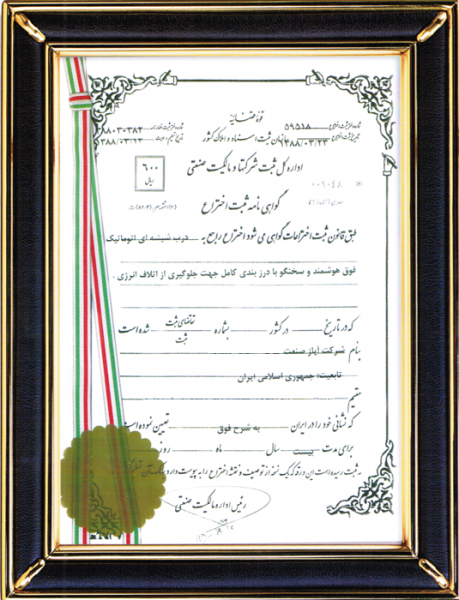 قوه قضائیه
شماره ثبت اختراع ۵۹۵۱۸
سازمان ثبت اسناد و املاک کشور
تاریخ ثبت اختراع ۱۳۸۸/۰۳/۲۳
۳۸۸۰۳۰۳۸۲
۱۳۸۸/۰۳/۱۳
اداره کل ثبت شرکتها و مالکیت صنعتی
۶۰۰
ریال
گواهی نامه ثبت اختراع
طبق قانون ثبت اختراعات گواهی می شود اختراع راجع به درب شیشه ای اتوماتیک
فوق هوشمند و سخنگو با درز بندی کامل جهت جلوگیری از اتلاف انرژی .
که در تاریخ در کشور بشماره تقاضای ثبت / ثبت شده است
بنام شرکت آیاز صنعت
تابعیت: جمهوری اسلامی ایران
مقیم
که نشانی خود را در ایران به شرح فوق تعیین نموده است
برای مدت بیست سال ماه روز
به ثبت رسیده است این ورقه که یک نسخه از توصیف و نقشه اختراع را به پیوست دارد
رئیس اداره مالکیت صنعتی